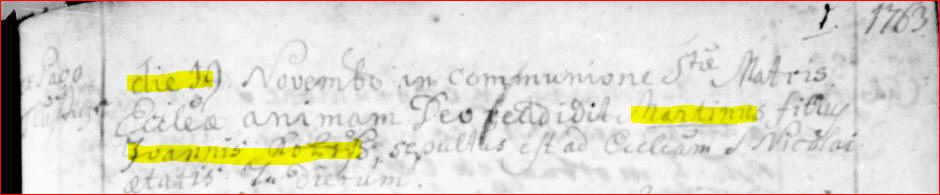 1. 1763
die 19 Novemb. in communione Stae Matris
Ecclae animam Deo reddidit Martinus filius
Joannis sepultus est ad Eccleam S Nicolai
aetatis dierum.